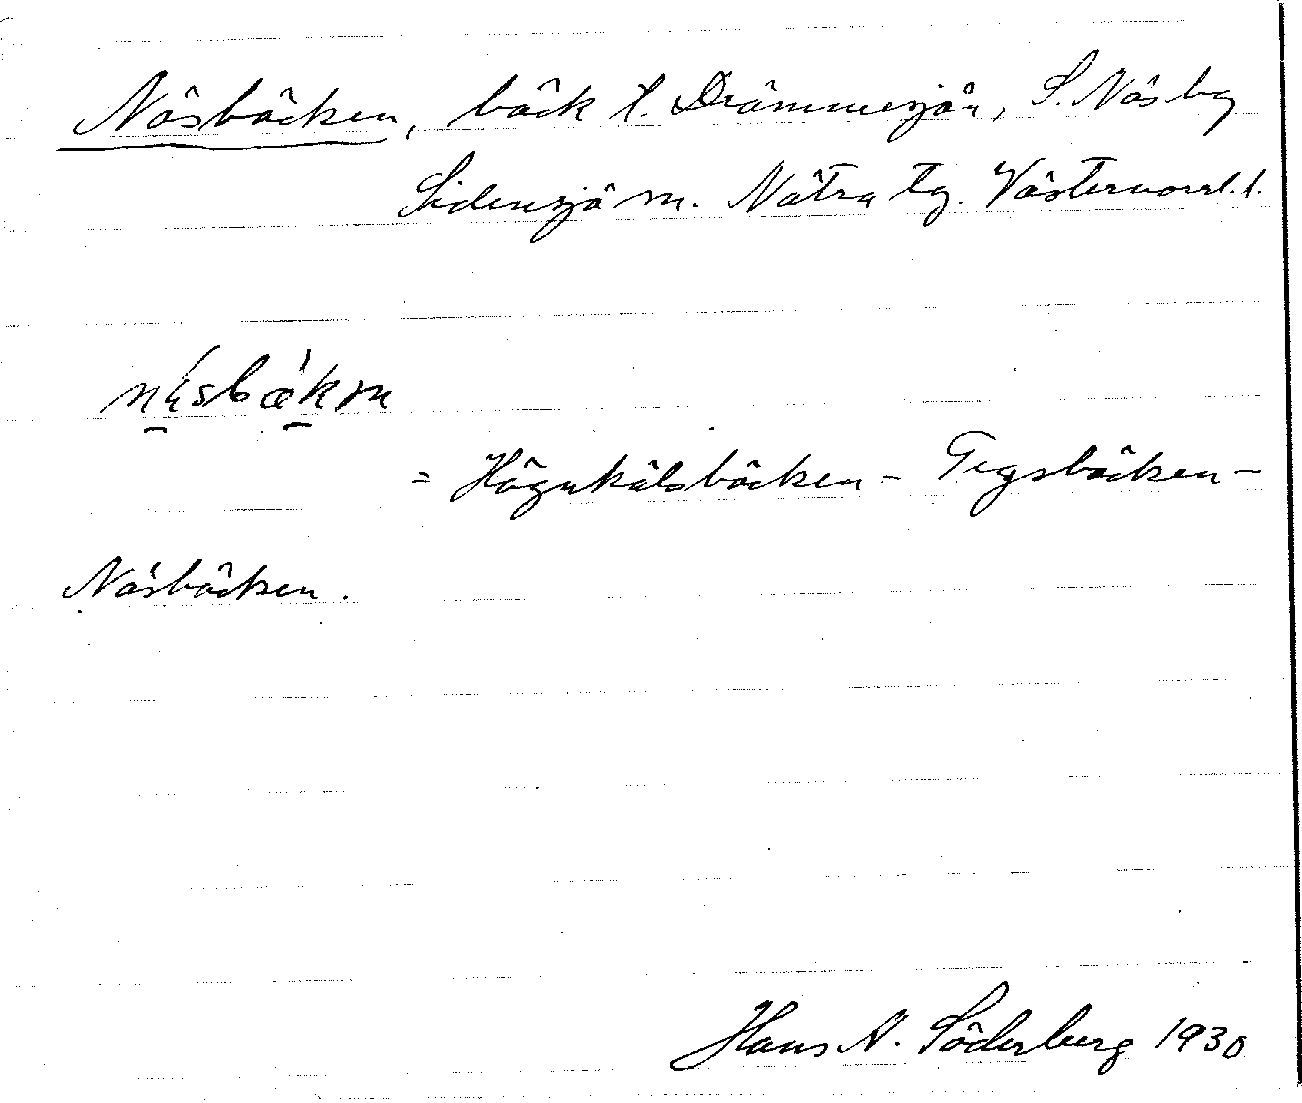 Näsbäcken, bäck t. Drömmesjön, S. Näs by
Sidensjö sn. Nätra tg. Västernorrl. l.
näsbækɴ
= Högukälsbäcken - Tegsbäcken -
Näsbäcken.
Hans N. Söderberg 1930